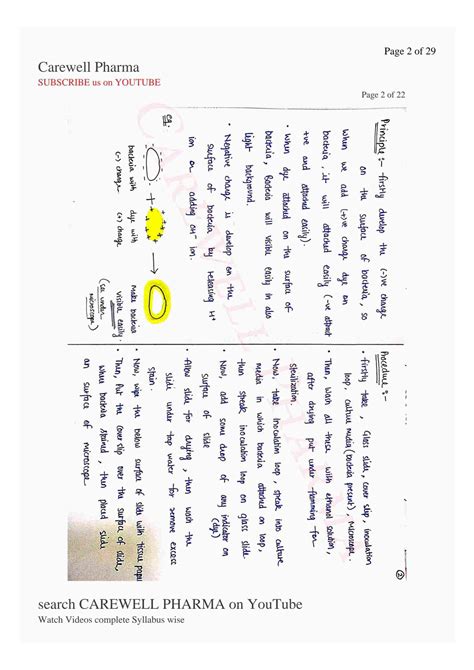 Page 2 of 29
Carewell Pharma
SUBSCRIBE us on YOUTUBE
Page 2 of 22
CAREWELL PHARMA
Principle :- firstly develop the (-)ve charge
on the surface of bacteria, so
when we add (+)ve charge dye on
bacteria, it will attached easily (-ve attract
+ve and attached easily).
• When dye attached on the surface of
bacteria, Bacteria will visible easily in
light background.
• Negative charge is develop on the
surface of bacteria by releasing H+
ion or adding OH- ion.
eg.
bacteria with
(-) charge
dye with
(+) charge
make bacteria
visible easily.
(see under
microscope)
②
Procedure :-
• firstly take, Glass slide, cover slip, inoculation
loop, culture media (bacteria present), Microscope.
• Then, wash all these with ethanol solution,
after drying put under flamming for
sterilization.
• Now, take inoculation loop, speak into culture
media in which bacteria attached on loop,
then speak inoculation loop on glass slide
• Now, add some drop of any indicator on
(dye)
surface of slide
• Allow slide for drying, then wash the
slide under tap water for remove excess
stain.
• Now, wipe the below surface of slide with tissue paper
• Then, Put the cover slip over the surface of slide,
where bacteria stained, then placed slide
on surface of microscope.
search CAREWELL PHARMA on YouTube
Watch Videos complete Syllabus wise